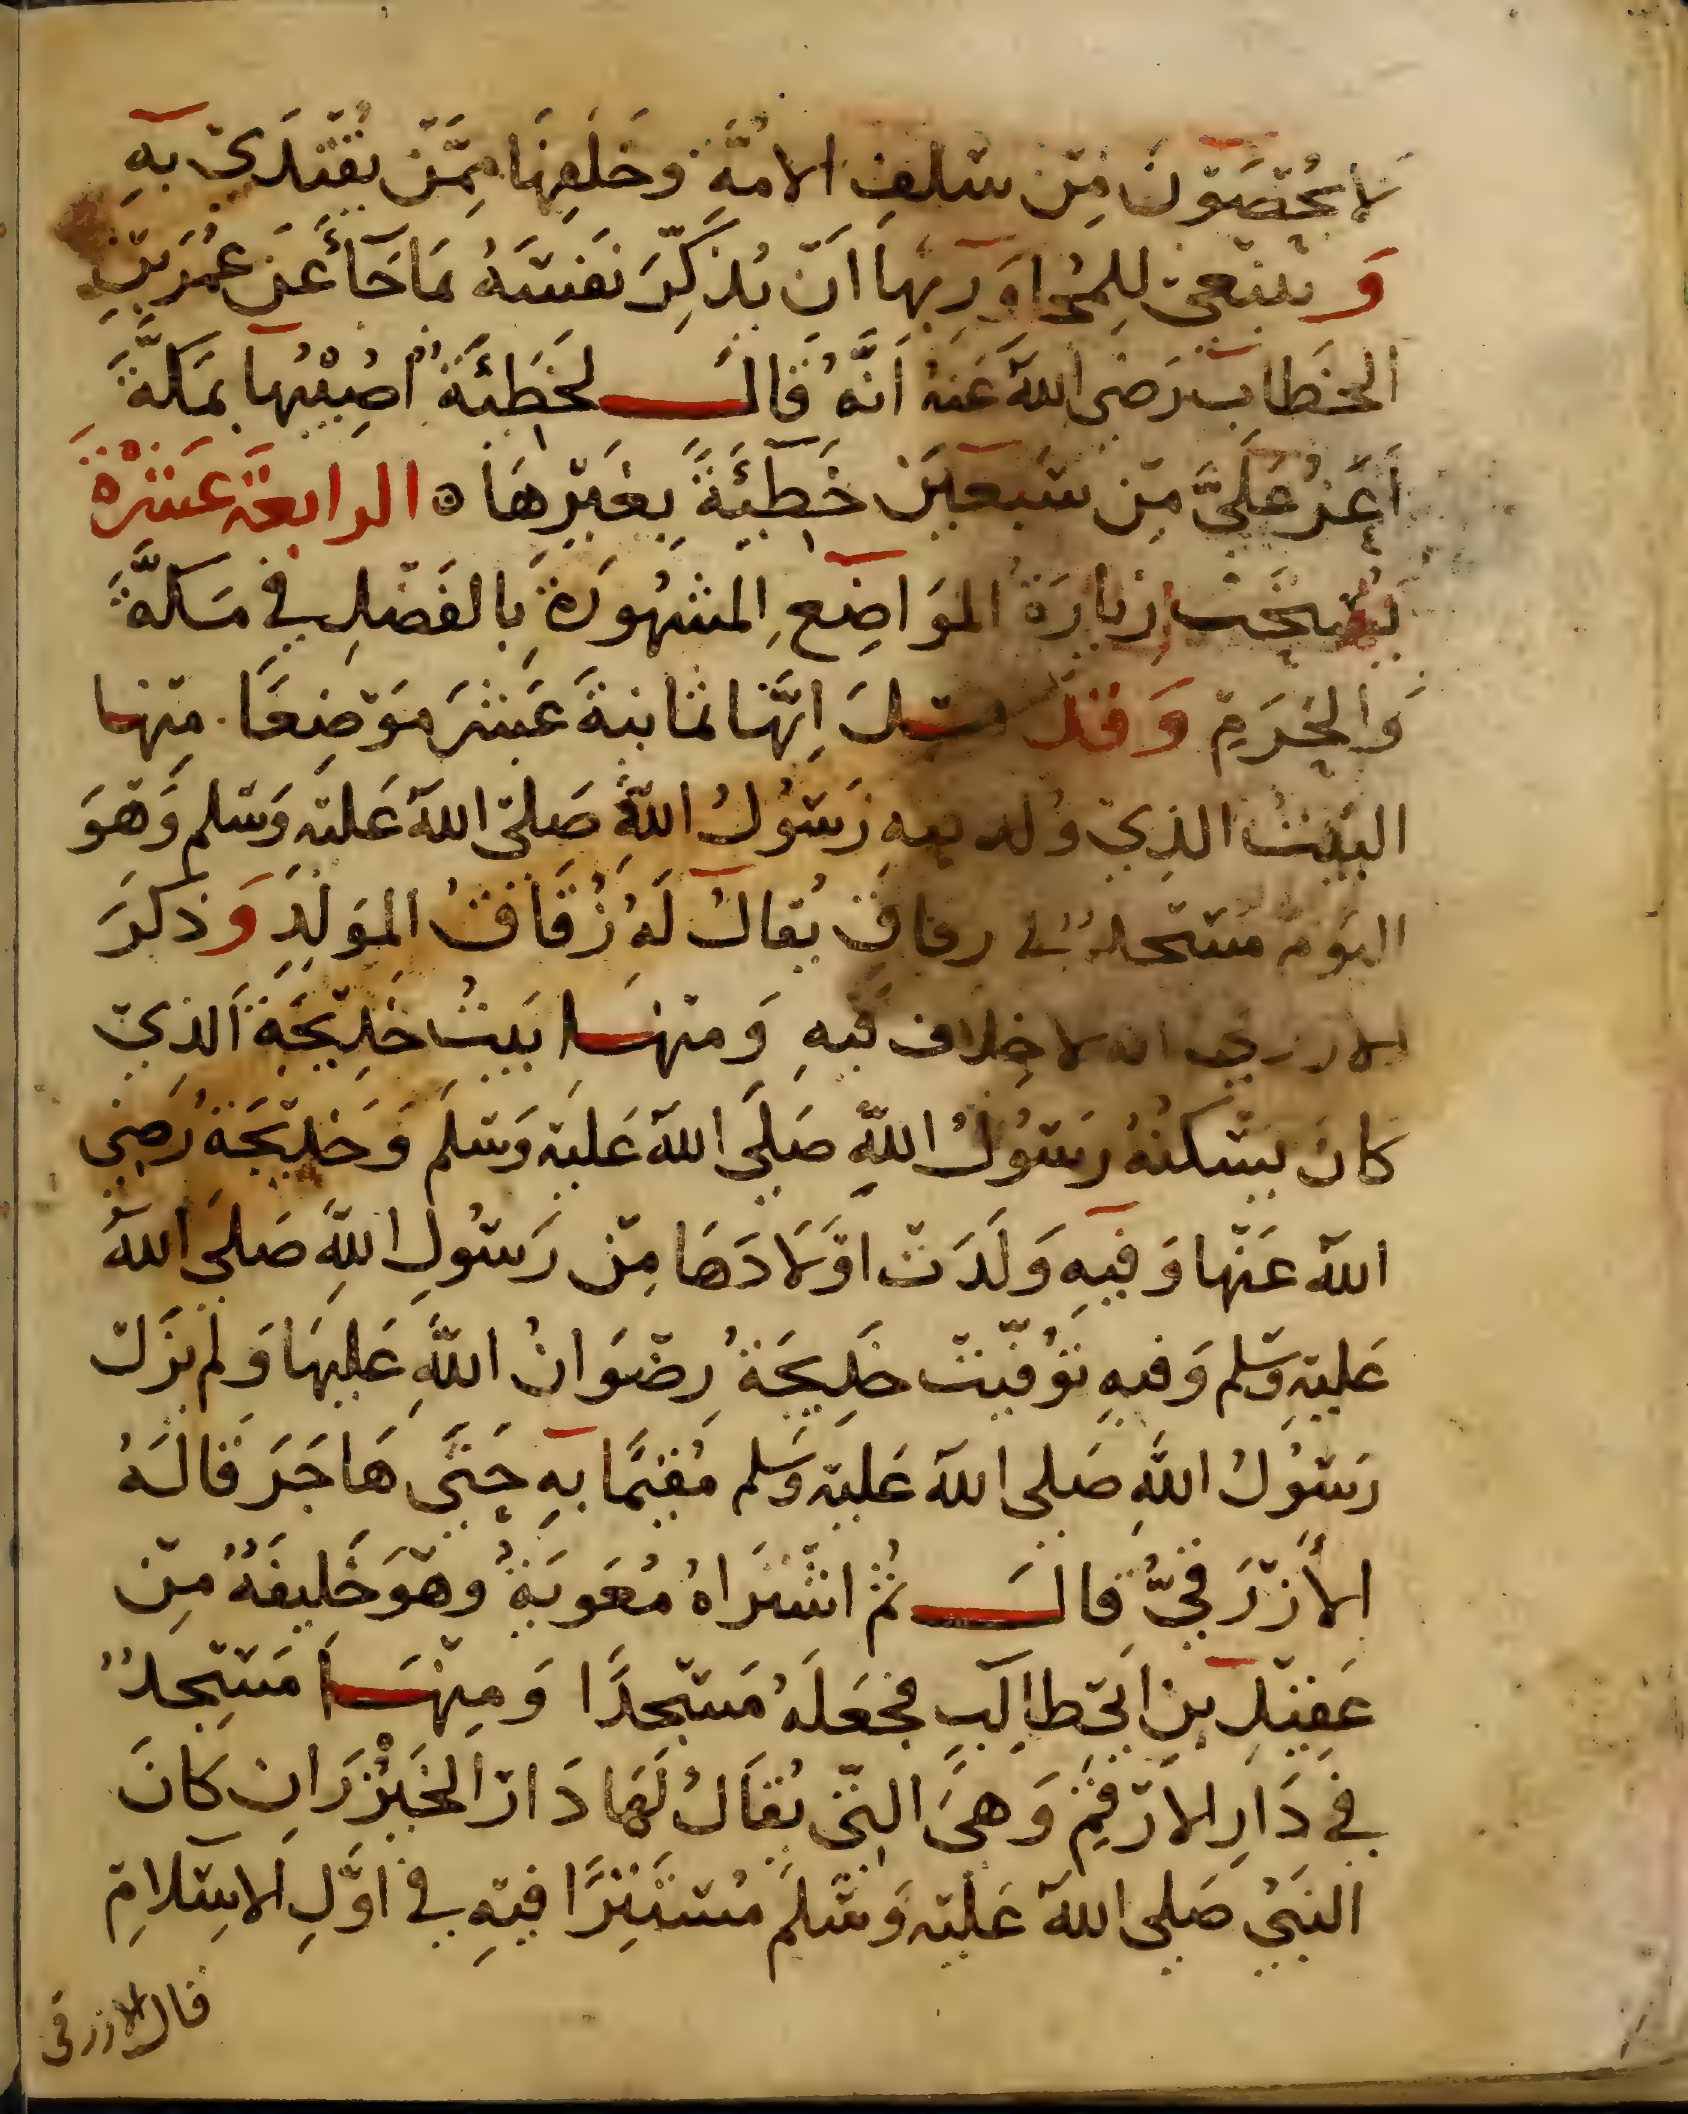 لَا يُحْصَوْنَ مِنْ سَلَفِ الأُمَّةِ وَخَلَفِهَا مِمَّنْ يُقْتَدَىْ بِهِ
وَيَنْبَغِى لِلْمُجَاوِرِ بِهَا أَنْ يُذَكِّرَ نَفْسَهُ بِمَا جَاءَ عَنْ عُمَرَ بْنِ
الخَطَابِ رَضِىَ اللهُ عَنْهُ أَنَّهُ قَالَ لَخَطِيْئَةٌ أُصِيْبُهَا بِمَكَّةَ
أَعَزُّ عَلَىَّ مِنْ سَبْعِيْنَ خَطِيْئَةً بِغَيْرِهَا ه الرابعَة عَشْرَةَ
يُسْتَحَبُ زِيَارَةُ المَوَاضِعِ المَشْهُورَةِ بِالفَضْلِ فِي مَكَّةَ
وَالحَرَمِ وَقَدْ قِيْلَ اِنَّهَا ثَمَانِيَةَ عَشَرَ مَوْضِعًا مِنْهَا
البَيْتُ الَّذِيْ وُلِدَ فِيهِ رَسُوْلُ اللهِ صَلَىْ اللهُ عَلَيْهِ وَسَلَم وَهُوَ
اليَوْمَ مَسْجِدٌ فِي زقاقٍ يُقَالُ لَهُ زُقَاقُ المَوْلِدِ وَذَكَرَ
الازرقي انه لا خِلَافَ فِيْهِ وَمِنْهَا بَيْتُ خَدِيْجَةَ الَّذِيْ
كَانَ يَسْكُنُهُ رَسُوْلُ اللهِ صَلَى اللهُ عَلَيْهِ وَسَلَمَ وَخَدِيْجَةُ رَضِىَ
اللهُ عَنْهَا وَفِيْهِ وَلَدَتْ اوْلَادَهَا مِنْ رَسُوْلِ اللهِ صَلَى اللهُ
عَلَيْهِ وَسَلم وَفيهِ تُوُفِّيَتْ خَدِيجَةُ رِضْوَانُ اللهِ عَلَيْهَا وَلَم يَزَلْ
رَسُوْلُ اللهِ صَلى اللهُ عَلَيْهِ وَسَلم مُقِيْمًا بِهِ حَتَّى هَاجَرَ قَالَهُ
الأَزْرَقِيُّ قَالَ ثُمَّ اشْتَرَاهُ مُعَوِيَةُ وهْوَ خَلِيفَةٌ مِنْ
عَقِيْلِ بْنِ اَبِىْ طَالِبٍ فَجَعَلَهُ مَسْجِدًا وَمِنْهَا مَسْجِدٌ
فِي دَارِ الأَرْقَمِ وَهِىَ الَّتِى يُقَالُ لَهَا دَارُ الخَيْزُرَانِ كَانَ
النَبِيُّ صَلى اللهُ عَلَيْهِ وَسَلَمَ مُسْتَتِرًا فِيْهِ فِي اَوَّلِ الاِسْلَامِ
قال الازرقى